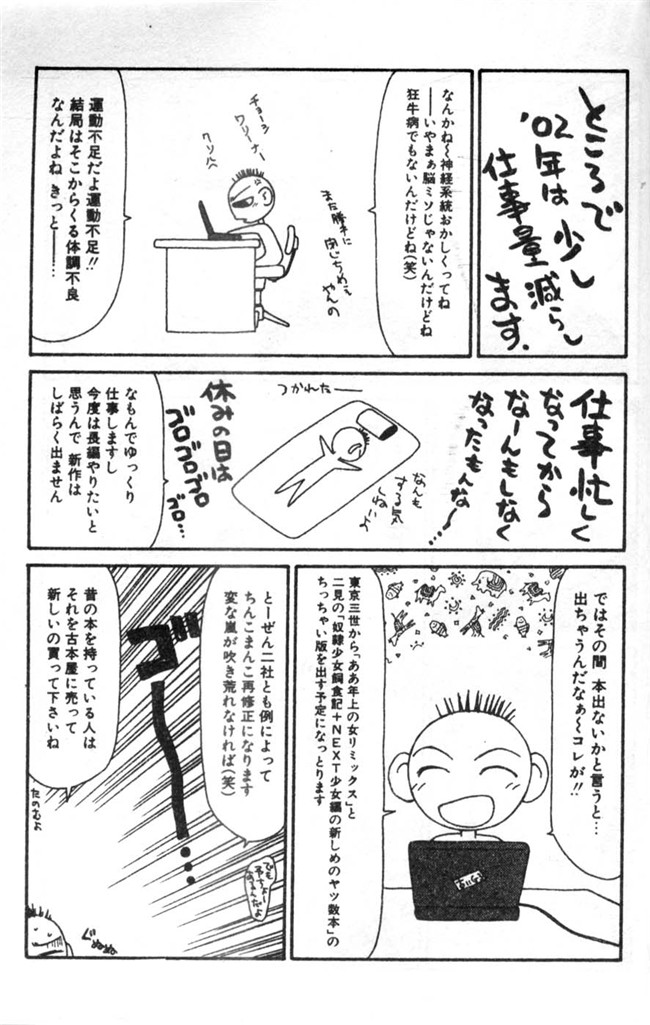 ところで
'02年は 少し
仕事量減らし
ます.
なんかね〜神経系統おかしくってね
――いやまぁ脳ミソじゃないんだけどね
狂牛病でもないんだけどね(笑)
また勝手に
閉じちめって
やんの
チョーシ
ワリーナー
クソいへ
運動不足だよ運動不足!!
結局はそこからくる体調不良
なんだよね きっと――…
仕事忙しく
なってから
なーんもしなく
なったもんな〜…
なんも
する気
しねいよ
つかれたー
休みの日は
ゴロゴロゴロ
ゴロ…
なもんでゆっくり
仕事しますし
今度は長編やりたいと
思うんで 新作は
しばらく出ません
ではその間 本出ないかと言うと…
出ちゃうんだなぁ〜コレが!!
東京三世から「ああ年上の女リミックス」と
二見の「奴隷少女飼食記+NEXT少女編の新しめのヤツ数本」の
ちっちゃい版を出す予定になっとります
とーぜん二社とも例によって
ちんこまんこ再修正になります
変な嵐が吹き荒れなければ(笑)
ゴ――…
昔の本を持っている人は
それを古本屋に売って
新しいの買って下さいね
たのむよ
ぐぬぬ